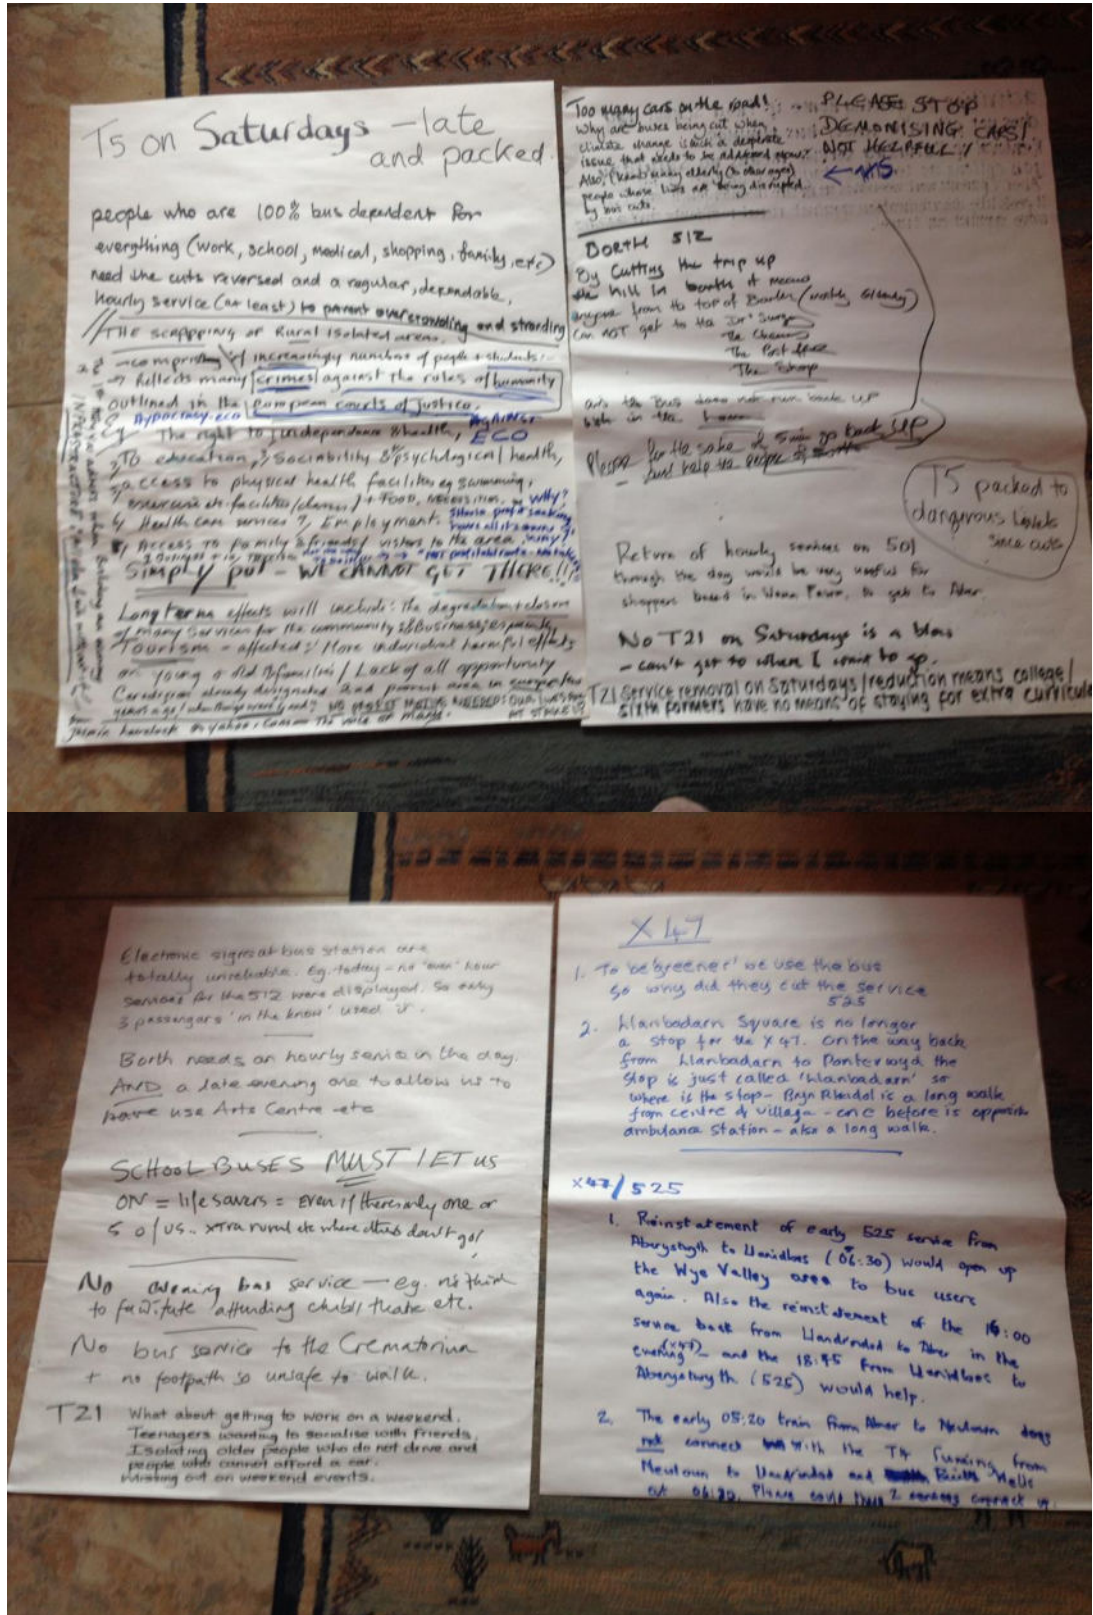 T5 on Saturdays - late
and packed.
people who are 100% bus dependent for
everything (work, school, medical, shopping, family, etc)
need the cuts reversed and a regular, dependable,
hourly service (at least) to prevent overcrowding and stranding
THE SCRAPPING OF Rural isolated areas.
increasingly numbers of people & students
Reflects many crimes against the rules of humanity
outlined in the European courts of justice.
Hypocrisy-eco
AGAINST
ECO
The right to independence & health,
To education, Sociability & psychological health,
access to physical health facilities eg swimming,
+ Food,
WHY?
Health care services 7, Employment.
Access To Family & friends / visitors to the area
SIMPLY PUT - WE CANNOT GET THERE!!!
Long Term effects will include: the degradation + closure
of many services for the community & Businesses especially
Tourism - affected: More individual harmful effects
on young & old & families / Lack of all opportunity
Ceredigion already designated
Too many cars on the road!
Why are buses being cut when
climate change is such a desperate
issue that needs to be addressed now?
Also, many elderly (& other ages)
people whose lives are being disrupted
by bus cuts.
PLEASE STOP
DEMONISING CARS!
NOT HELPFUL!
BORTH 512
By Cutting the trip up
the hill in borth it means
anyone from the top of Borth (mostly Elderly)
Can NOT get to the Dr's Surgery
The Chemist
The Post office
The Shop
and the Bus does not run back UP
Please for the sake of 5 min go back UP
and help the people
T5 packed to
dangerous levels
since cuts
Return of hourly services on 501
through the day would be very useful for
shoppers based in Waun Fawr, to get to Aber.
No T21 on Saturdays is a blow
- can't get to where I want to go.
T21 Service removal on Saturdays/reduction means college/
sixth formers have no means of staying for extra curricula
Electronic signs at bus station are
totally unreliable. Eg. today - no 'even' hour
services for the 512 were displayed. So only
3 passengers 'in the know' used it.
Borth needs an hourly service in the day.
AND a late evening one to allow us to
use Arts Centre etc
SCHOOL BUSES MUST LET US
ON = life savers = Even if there's only one or
5 of us.. xtra rural etc where others don't go!
No evening bus service — eg.
to facilitate attending clubs/theatre etc.
No bus service to the Crematorium
+ no footpath so unsafe to walk.
T21 What about getting to work on a weekend.
Teenagers wanting to socialise with friends.
Isolating older people who do not drive and
people who cannot afford a car.
Missing out on weekend events.
X47
1. To 'be greener' we use the bus
so why did they cut the service
525
2. Llanbadarn Square is no longer
a stop for the X47. On the way back
from Llanbadarn to Ponterwyd the
stop is just called 'Llanbadarn' so
where is the stop - Bryn Rheidol is a long walk
from centre of village - one before is opposite
ambulance station - also a long walk.
X47/525
1. Reinstatement of early 525 service from
Aberystwyth to Llanidloes (06:30) would open up
the Wye Valley area to bus users
again. Also the reinstatement of the 16:00
service back from Llandrindod to Aber in the
evening (X47) - and the 18:45 from Llanidloes to
Aberystwyth (525) would help.
2. The early 05:20 train from Aber to Newtown does
not connect with the T4 running from
Newtown to Llandrindod and Builth Wells
at 06:20. Please could these 2 services connect up.